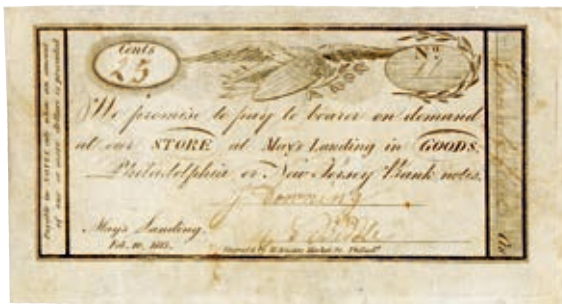 Cents
25
No
We promise to pay to bearer on demand
at our STORE at May's Landing in GOODS,
Philadelphia or New Jersey Bank notes.
J Downing
May's Landing.
Feb. 10, 1815.
Engraved by Market St. Philadª
Payable in NOTES only when an amount
of one or more dollars is presented